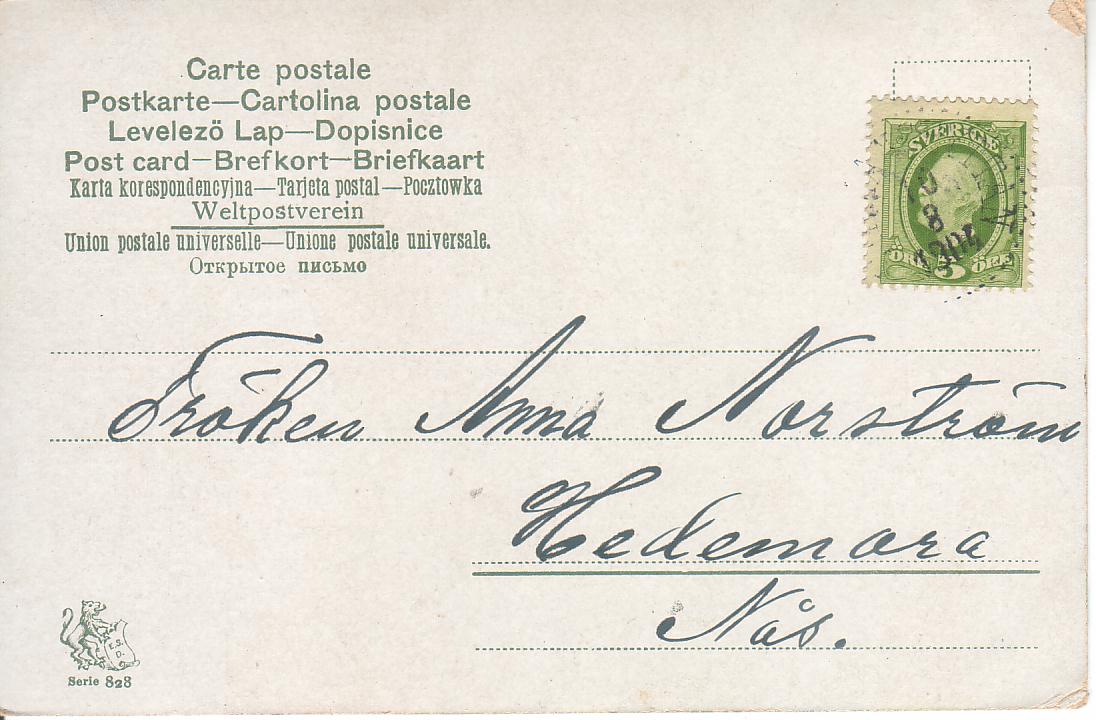 Carte postale
Postkarte—Cartolina postale
Levelező Lap—Dopisnice
Post card—Brefkort—Briefkaart
Karta korespondencyjna—Tarjeta postal—Pocztowka
Weltpostverein
Union postale universelle—Unione postale universale.
Открытое письмо
SVERIGE
8
1904
ÖRE 5 ÖRE
Fröken Anna Norström
Hedemora
Nås.
E.S.
D.
Serie 828